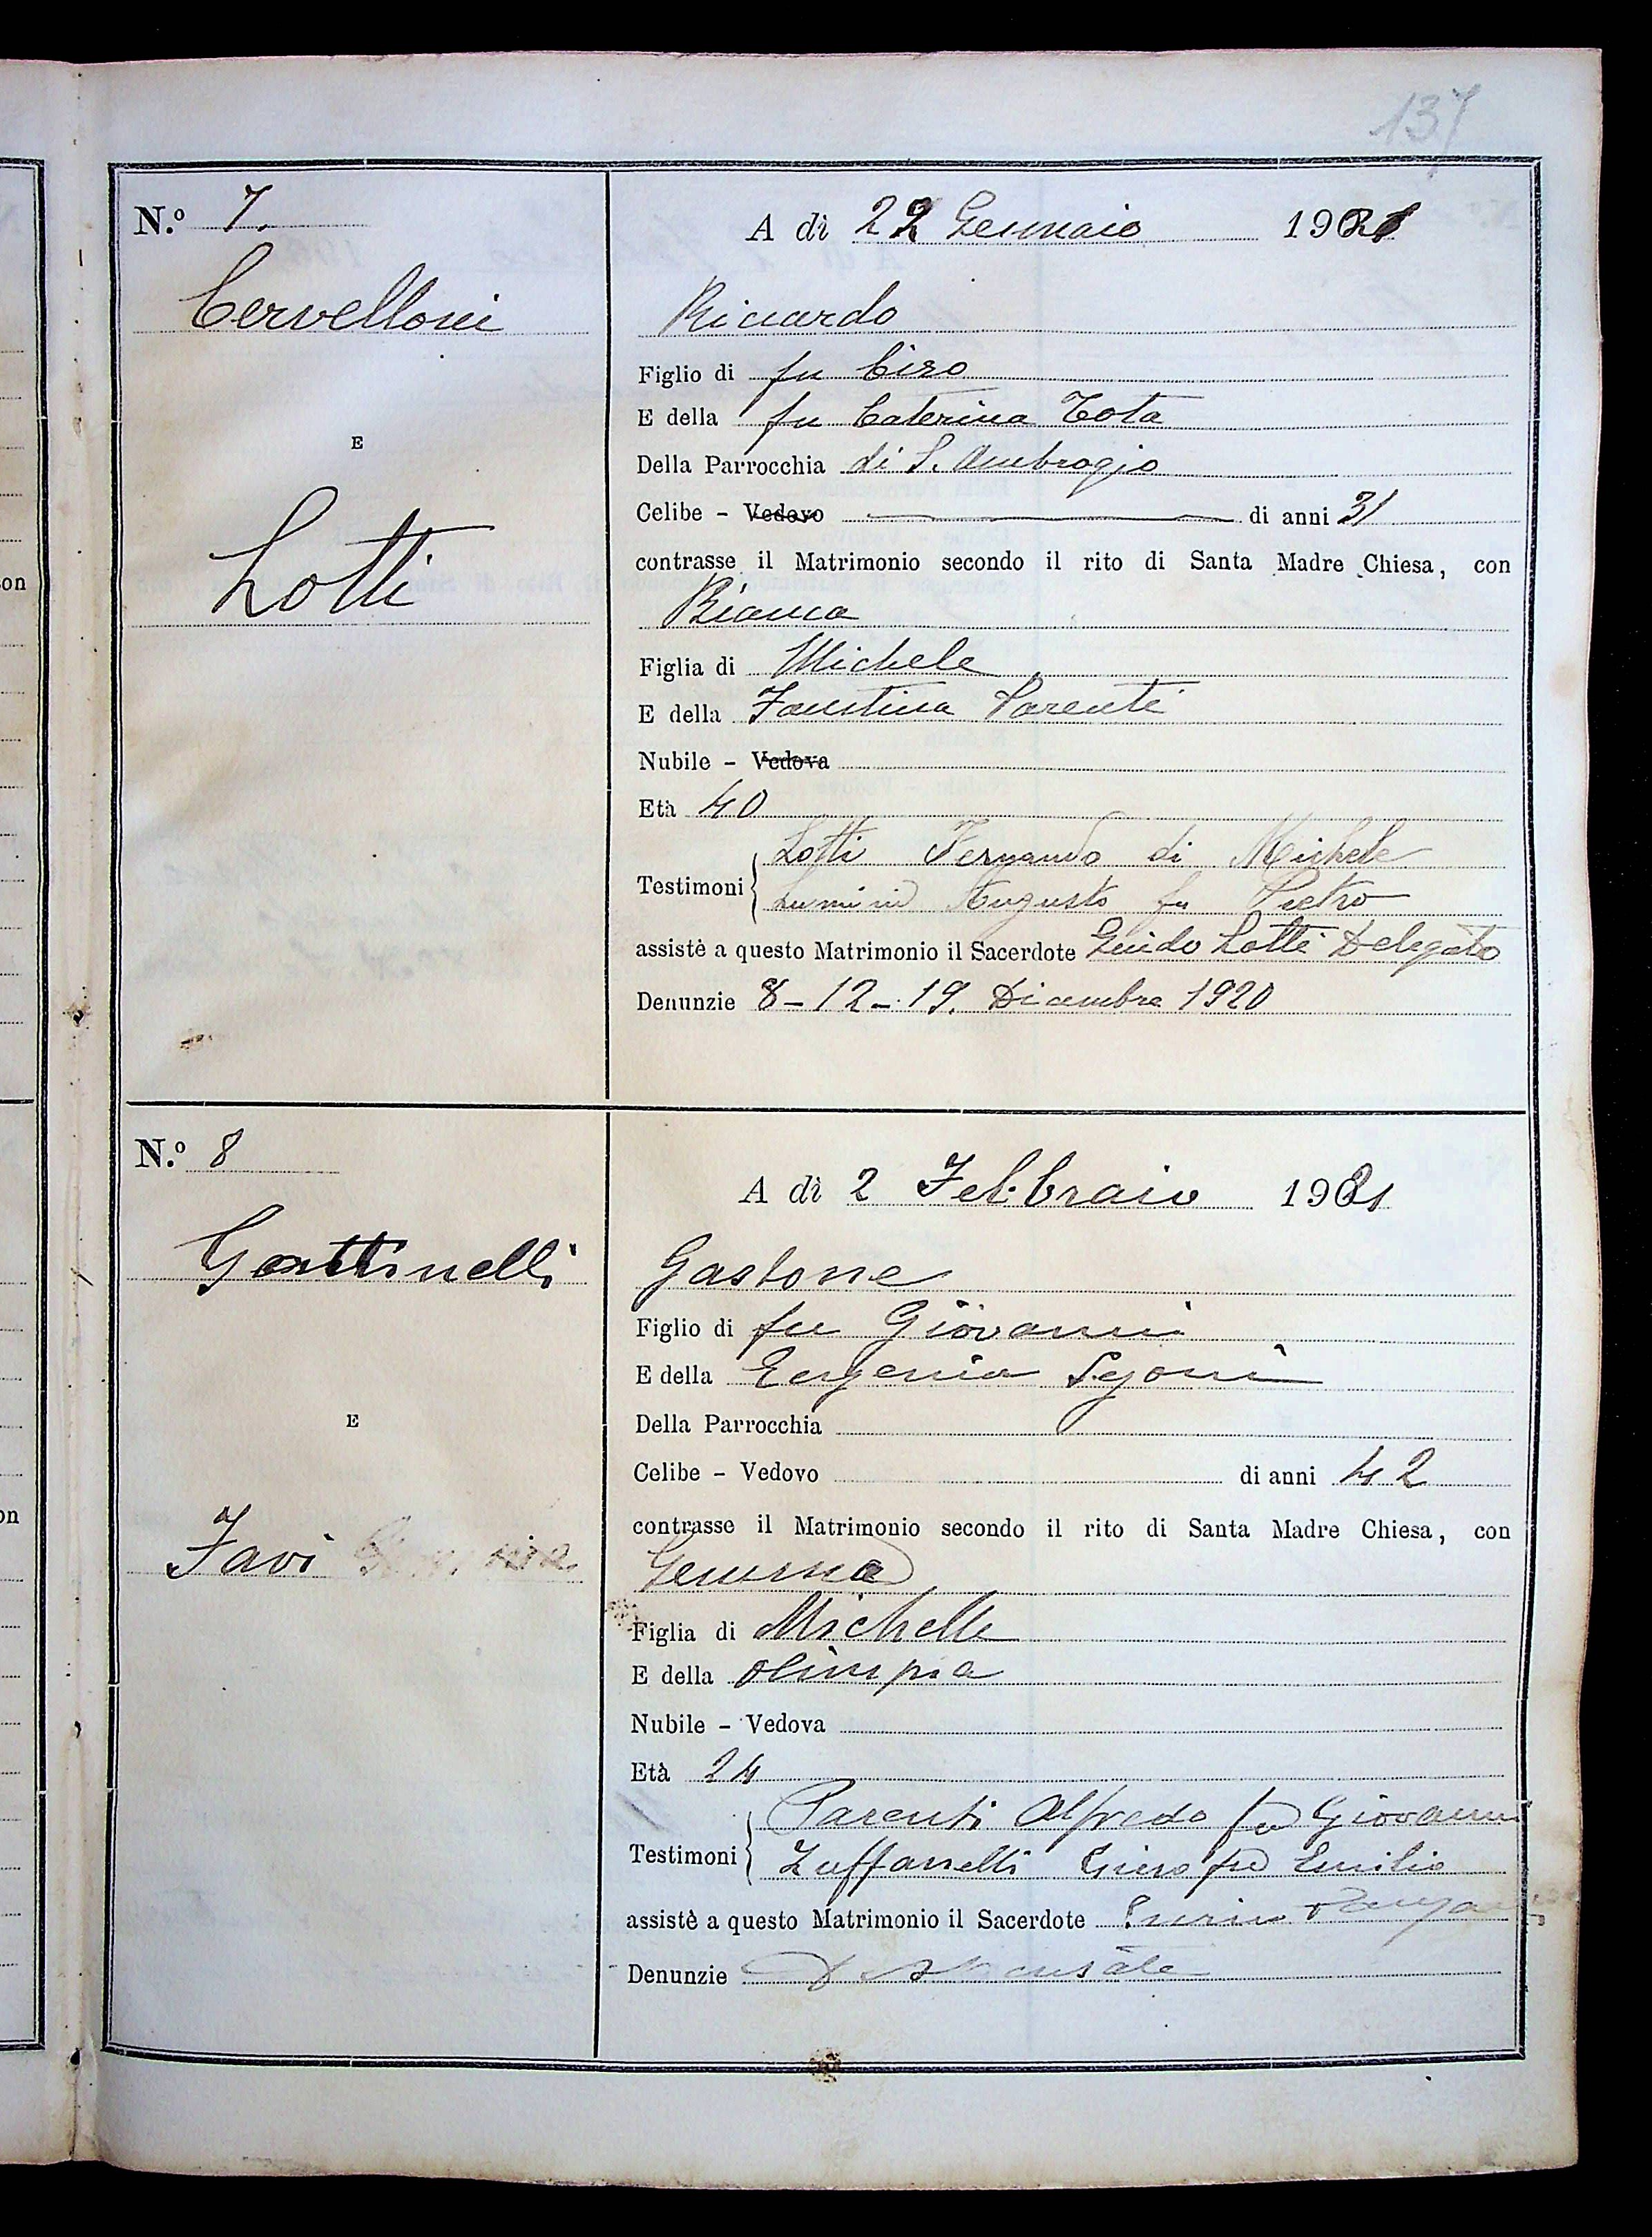 137
N.º 7.
A dì 22 Gennaio 1921
Cervelloni
Riccardo
Figlio di fu Ciro
E della fu Caterina Tota
E
Della Parrocchia di S. Ambrogio
Celibe - Vedovo di anni 31
contrasse il Matrimonio secondo il rito di Santa Madre Chiesa, con
Lotti
Bianca
Figlia di Michele
E della Faustina Parenti
Nubile - Vedova
Età 40
Testimoni
Lotti Fernando di Michele
Augusto fu Pietro
assistè a questo Matrimonio il Sacerdote Guido Lotti Delegato
Denunzie 8 - 12 - 19. Dicembre 1920
N.º 8
A dì 2 Febbraio 1921
Gattinelli
Gastone
Figlio di fu Giovanni
E della Eugenia
E
Della Parrocchia
Celibe - Vedovo di anni 42
contrasse il Matrimonio secondo il rito di Santa Madre Chiesa, con
Favi
Gemma
Figlia di Michele
E della Olimpia
Nubile - Vedova
Età 24
Testimoni
Parenti Alfredo fu Giovanni
Zuffanelli fu Emilio
assistè a questo Matrimonio il Sacerdote
Denunzie Dispensate
on
on